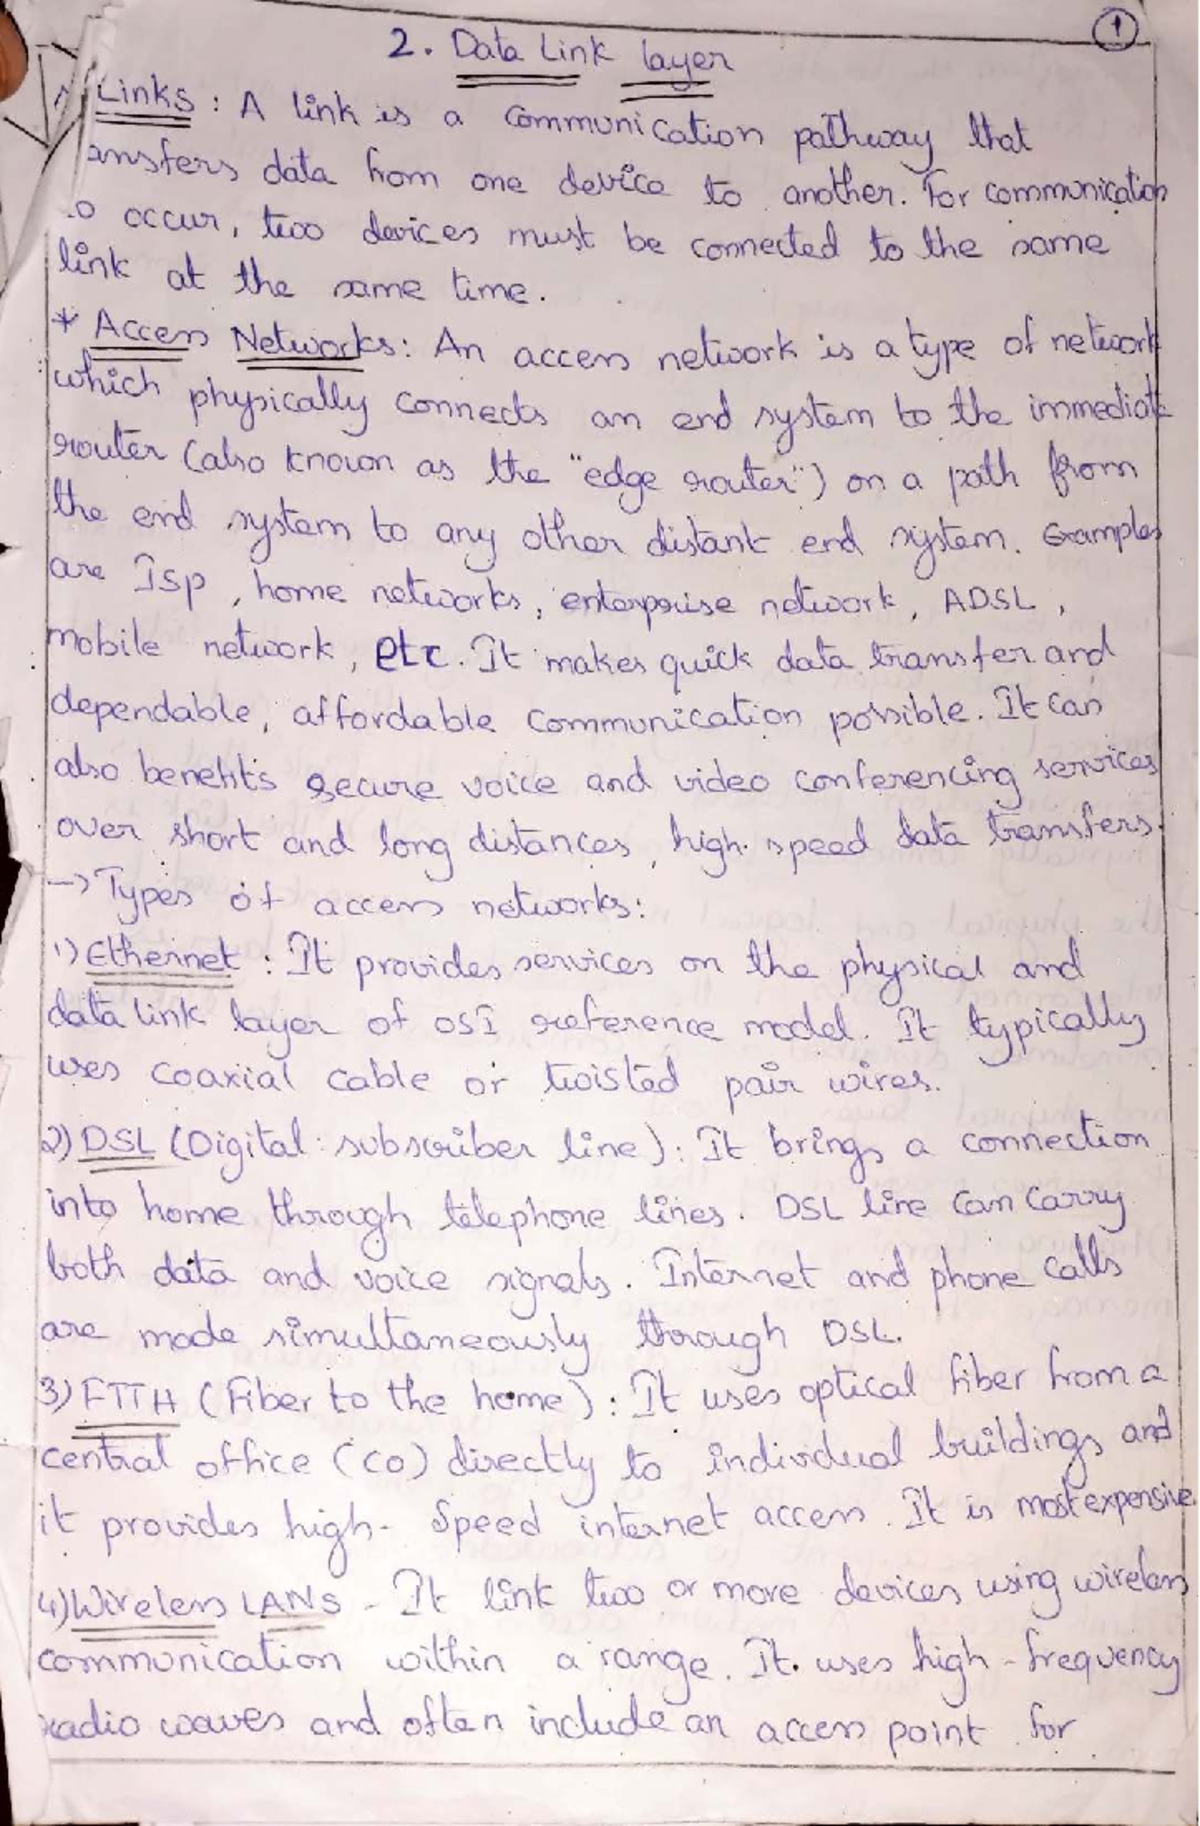 1
2. Data Link layer
* Links : A link is a communication pathway that
ansfers data from one device to another. For communication
o occur, two devices must be connected to the same
link at the same time.
* Access Networks : An access network is a type of network
which physically connects an end system to the immediate
router (also known as the "edge router") on a path from
the end system to any other distant end system. Examples
are Isp, home networks, enterprise network, ADSL,
mobile network, etc. It makes quick data transfer and
dependable, affordable communication possible. It can
also benefits secure voice and video conferencing services
over short and long distances, high-speed data transfers.
-> Types of access networks:
1) Ethernet : It provides services on the physical and
data link layer of OSI reference model. It typically
uses coaxial cable or twisted pair wires.
2) DSL (Digital subscriber line): It brings a connection
into home through telephone lines. DSL line can carry
both data and voice signals. Internet and phone calls
are made simultaneously through DSL.
3) FTTH (Fiber to the home) : It uses optical fiber from a
central office (CO) directly to individual buildings and
it provides high-speed internet access. It is most expensive.
4) Wireless LANs - It link two or more devices using wireless
communication within a range. It uses high-frequency
radio waves and often include an access point for